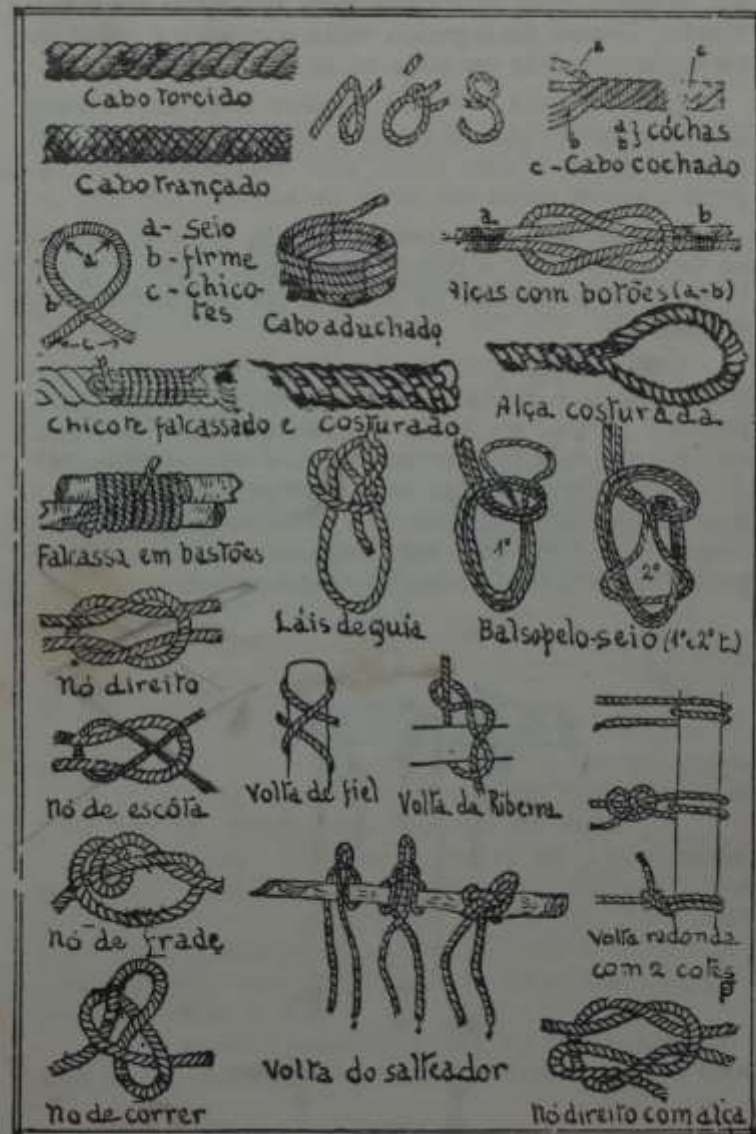 Cabo Torcido
NÓS
a
c
b
a } cóchas
b
c - Cabo cochado
Cabo Trançado
a - seio
b - firme
c - chico-
tes
a
b
c
Cabo aduchado
a
b
Alças com botões (a-b)
Chicote falcassado e costurado
Alça costurada
Falcassa em bastões
Láis de guia
1º
2º
Balsopelo-seio (1º e 2º t.)
Nó direito
Nó de escóta
Volta de fiel
Volta da Ribeira
Nó de frade
Volta redonda
com 2 cotes
Nó de correr
Volta do salteador
Nó direito com alça